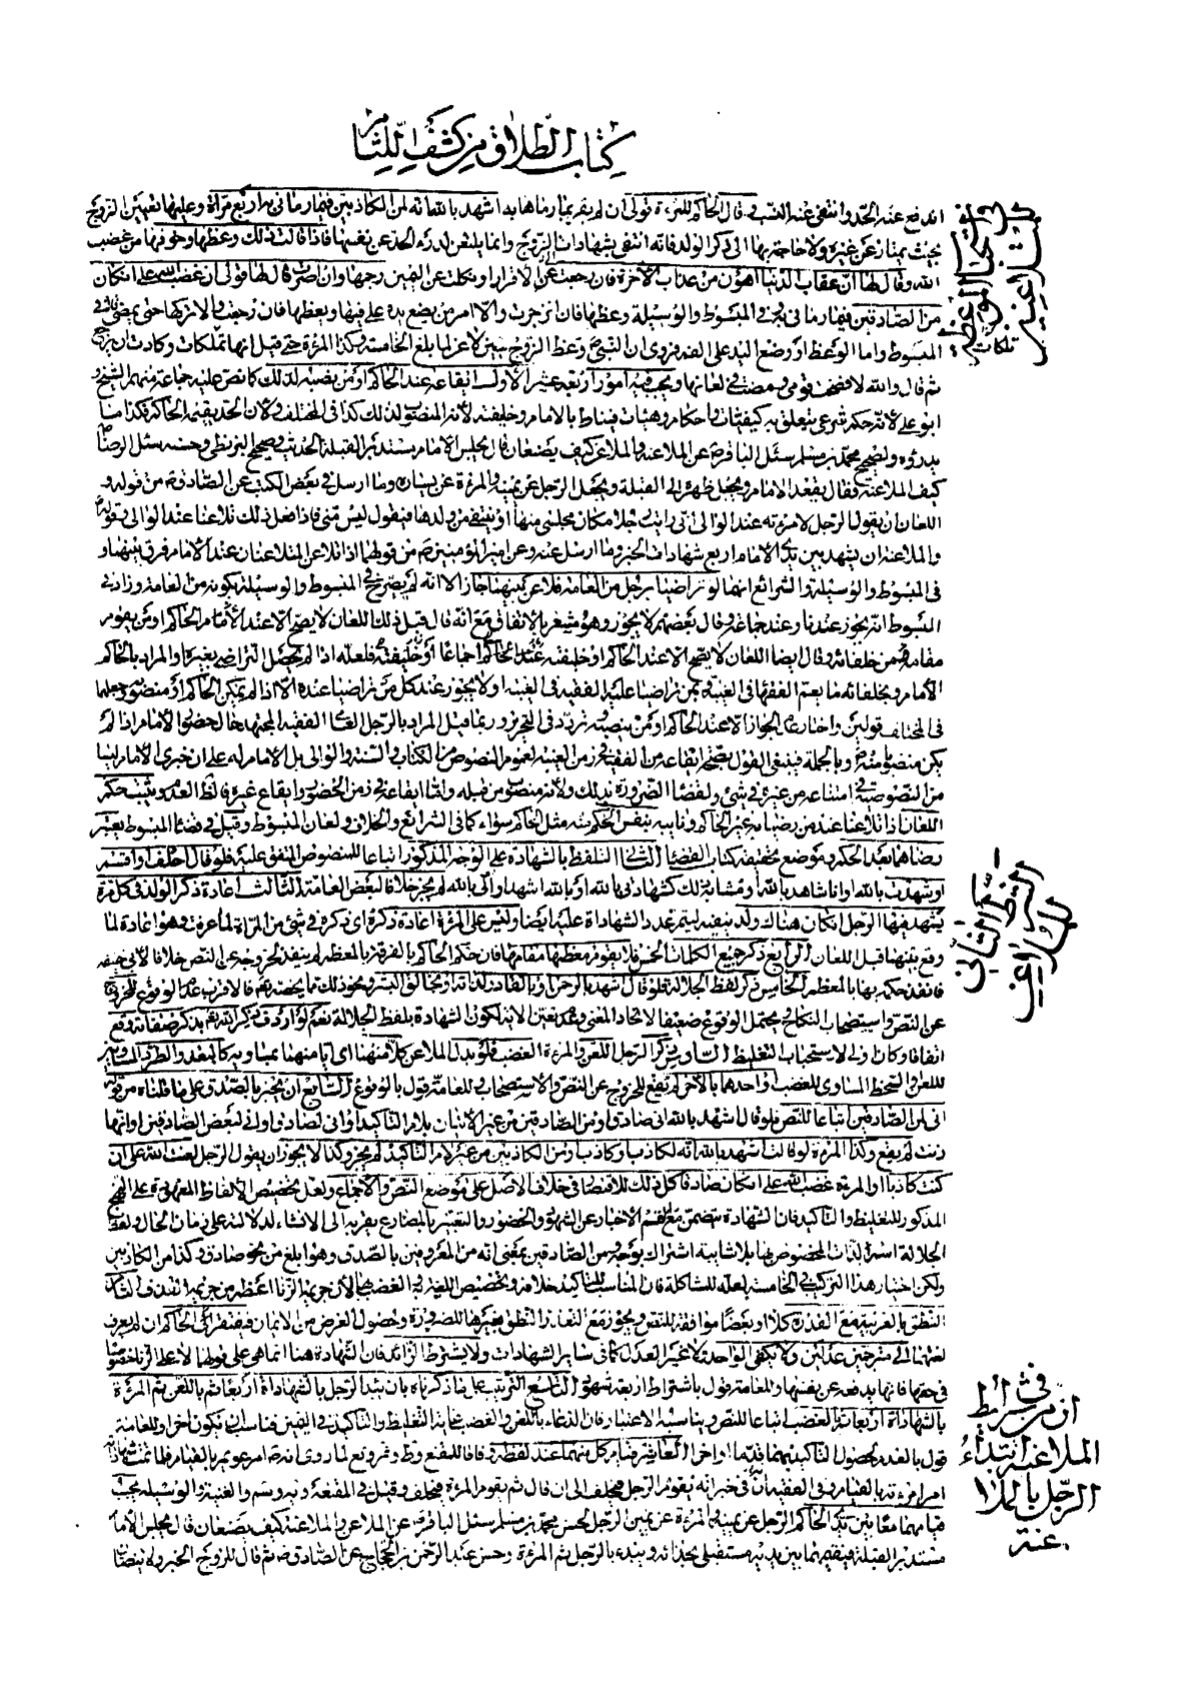 كتاب الطلاق من كشف اللثام
اندفع عنه الحد وانتفى عنه النسب قال الحاكم للمرءة قولى ان لم يقر بما رماها به اشهد بالله انه لمن الكاذبين فيما رمانى به اربع مرات وعليها تعيين الزوج
بحيث يمتاز عن غيره ولا حاجة بها الى ذكر الولد فانه انتفى بشهادات الزوج وانما يلتعن لدرء الحد عن نفسها فاذا قالت ذلك وعظها وخوفها من غضب
الله وقال لها ان عقاب الدنيا اهون من عذاب الاخرة فان رجعت الى الاقرار او نكلت عن اليمين رجمها وان اصرت قال لها قولى ان غضب الله على ان كان
من الصادقين فيما رمانى به وفى المبسوط والوسيلة وعظها فان انزجرت والا امر من يضع يده على فيها ويعظها فان رجعت والا تركها حتى يمضى
المبسوط واما الوعظ او وضع اليد على الفم فروى ان النبى وعظ الزوج حين لاعن لما بلغ الخامسة وكذا المرءة حتى قيل انها تلكات وكادت ان ترجع
ثم قال والله لا فضحت قومى ومضت فى لعانها ويجب فيه امور اربعة عشر الاول ايقاعه عند الحاكم او من نصبه لذلك كما نص عليه جماعة منهم الشيخ و
ابو على لانه حكم شرعى يتعلق به كيفيات واحكام وهيئات فيناط بالامام وخليفته لانه المنصوب لذلك كذا فى المختلف ولان الحد يقيمه الحاكم فكذا ما
يدرؤه ولصحيح محمد بن مسلم سئل الباقر عن الملاعنة والملاعن كيف يصنعان قال يجلس الامام مستدبر القبلة الحديث وصحيح البزنطى وحسنه سئل الرضا
كيف الملاعنة فقال يقعد الامام ويجعل ظهره الى القبلة ويجعل الرجل عن يمينه والمرءة عن يساره وما ارسل فى بعض الكتب عن الصادق من قوله و
اللعان ان يقول الرجل لامرءته عند الوالى انى رايت رجلا مكان مجلسى منها او ينتفى من ولدها فيقول ليس منى فاذا فعل ذلك تلاعنا عند الوالى وقوله
والملاعنة ان يشهد بين يدى الامام اربع شهادات الخبر وما ارسل عنه وعن امير المؤمنين من قولهما اذا تلاعن المتلاعنان عند الامام فرق بينهما و
فى المبسوط والوسيلة والشرائع انهما لو تراضيا برجل من العامة فلاعن بينهما جاز الا انه لم يصرح فى المبسوط والوسيلة بكونه من العامة وزاد فى
المبسوط انه يجوز عندنا وعند جماعة وقال بعضهم لا يجوز وهو مشعر بالاتفاق مع انه قال قبل ذلك اللعان لا يصح الا عند الامام الحاكم او من يقوم
مقامه من خلفائه وقال ايضا اللعان لا يصح الا عند الحاكم او خليفته اجماعا فلعله اذا لم يحصل التراضى بغيره والمراد بالحاكم
الامام وبخلفائه ما يعم الفقهاء فى الغيبة وبمن تراضيا عليه الفقيه فى الغيبة او لا يجوز عند كل من تراضيا عنده الا اذا لم يمكن الحاكم او منصوبه وجعلها
فى المختلف قولين واختار عدم الجواز الا عند الحاكم او من ينصبه وتردد فى التحرير وربما قيل المراد بالرجل العامى الفقيه المجتهد حال حضور الامام اذا لم
يكن منصوبا منه وبالجملة فينبغى القول بصحة ايقاعه من الفقيه فى زمن الغيبة لعموم النصوص من الكتاب والسنة والوالى بل الامام له على ان خبرى الامام ليسا
من النصوص فى امتناعه من غيره فى شئ ولقضاء الضرورة بذلك ولانه منصوب من قبله واما ايقاعه فى زمن الحضور وايقاع غيره فالظاهر العدم ويثبت حكم
اللعان اذا تلاعنا عند من رضيا به غير الحاكم ونائبه بنفس الحكم منه مثل الحاكم سواء كما فى الشرائع والخلاف ولعان المبسوط وقيل فى قضاء المبسوط يعتبر
رضاهما بعد الحكم وموضع تحقيقه كتاب القضاء الثانى التلفظ بالشهادة على الوجه المذكور اتباعا للمنصوص المتفق عليه فلو قال احلف او اقسم
او شهدت بالله او انا شاهد بالله او مشابه ذلك كشهادتى بالله او بالله اشهد او انى بالله لم يجز خلافا لبعض العامة الثالث اعادة ذكر الولد فى كل مرة
يشهد فيها الرجل ان كان هناك ولد ينفيه ليتم عدد الشهادة عليه ايضا وليس على المرءة اعادة ذكره اى ذكره فى شئ من المرات لما عرفت وهو اعادة لما
وقع بينهما قبل اللعان الرابع ذكر جميع الكلمات الخمس فلا يقوم معظمها مقامها فان حكم الحاكم بالفرقة بالمعظم لم ينفذ لخروجه عن النص خلافا لابى حنيفة
فانفذ حكمه بها بالمعظم الخامس ذكر لفظ الجلالة فلو قال اشهد بالرحمن او بالقادر لذاته او بخالق البشر ونحو ذلك مما يخصه تعم فالاقرب عدم الوقوع للخروج
عن النص واستصحاب النكاح ويحتمل الوقوع ضعيفا لاتحاد المعنى وعدم تعين الا بد لكون الشهادة بلفظ الجلالة نعم لو اردف ذكر الله تعم بذكر صفاته وقع
اتفاقا وكان اولى لاستحباب التغليظ السادس ذكر الرجل اللعن والمرءة الغضب فلو بدل الملاعن كلا منهما اى ايا منهما بمساويه كالبعد والطرد المساويين
للعن والسخط المساوى للغضب او احدهما بالاخر لم يقع للخروج عن النص والاستصحاب وللعامة قول بالوقوع السابع ان يخبر بالصدق على ما قلناه من قوله
انى لمن الصادقين اتباعا للنص فلو قال اشهد بالله انى صادق او من الصادقين من غير الاتيان بلام التاكيد او انى لصادق او انى لبعض الصادقين او انها
زنت لم يقع وكذا المرءة لو قالت اشهد بالله انه لكاذب او كاذب او من الكاذبين من غير لام التاكيد لم يجز وكذا لا يجوز ان يقول الرجل لعنة الله على ان
كنت كاذبا او المرءة غضب الله على ان كان صادقا كل ذلك للاقتصار فى خلاف الاصل على موضع النص والاجماع ولعل تخصيص الالفاظ المعهودة على النهج
المذكور للتغليظ والتاكيد فان الشهادة تتضمن مع القسم الاخبار عن الشهود والحضور والتعبير بالمضارع يقربه الى الانشاء لدلالته على زمان الحال ولفظ
الجلالة اسم للذات المخصوص بها بلا شايبة اشتراك بوجه ومن الصادقين بمعنى انه من المعروفين بالصدق وهو ابلغ من نحو صادق وكذا من الكاذبين
ولكن اختيار هذا التركيب فى الخامسة لعله للمشاكلة فان المناسب للتاكيد خلافه وتخصيص اللعنة به والغضب بها لان جريمة الزنا اعظم من جريمة القذف الثامن
النطق بالعربية مع القدرة كلا او بعضا موافقة للنص ويجوز مع التعذر النطق بغيرها للضرورة وحصول الغرض من الايمان فيفتقر الحاكم ان لم يعرف
لغتهما الى مترجمين عدلين ولا يكفى الواحد ولا غير العدل كما فى ساير الشهادات ولا يشترط الزائد فان الشهادة هنا انما هى على قولهما لا على الزنا خصوصا
فى حقها فانها يدفعه عن نفسها وللعامة قول باشتراط اربعة شهود التاسع الترتيب على ما ذكرناه بان يبدا الرجل بالشهادة اربعا ثم باللعن ثم المرءة
بالشهادة اربعا ثم الغضب اتباعا للنص ويناسبه الاعتبار فان الدعاء باللعن والغضب غاية التغليظ والتاكيد فى اليمين فناسب ان يكون اخرا وللعامة
قول بالعدم لحصول التاكيد بهما قدما او اخرا العاشر قيام كل منهما عند لفظه وفاقا للمقنع وط وئر ويع لما روى انه ص امر عويمر بالقيام فلما تمت شهادته
امر امرءته بالقيام وفى الفقيه ان فى خبر انه يقوم الرجل فيحلف الى ان قال ثم يقوم المرءة فيحلف وقيل فى المقنعة ويه وسم والغنية والوسيلة يجب
قيامهما معا بين يدى الحاكم الرجل عن يمينه والمرءة عن يمين الرجل لحسن محمد بن مسلم سئل الباقر عن الملاعن والملاعنة كيف يصنعان قال يجلس الامام
مستدبر القبلة فيقيمهما بين يديه مستقبل القبلة بحذائه ويبدء بالرجل ثم المرءة وحسن عبد الرحمن بن الحجاج عن الصادق ثم قال للزوج الخبر ولانتصاب
تلكات
فى التلفظ
للملاعنين
فى شرائط
ان من شرائط
الملاعنة ابتداء
الرجل بالملا
عنة.